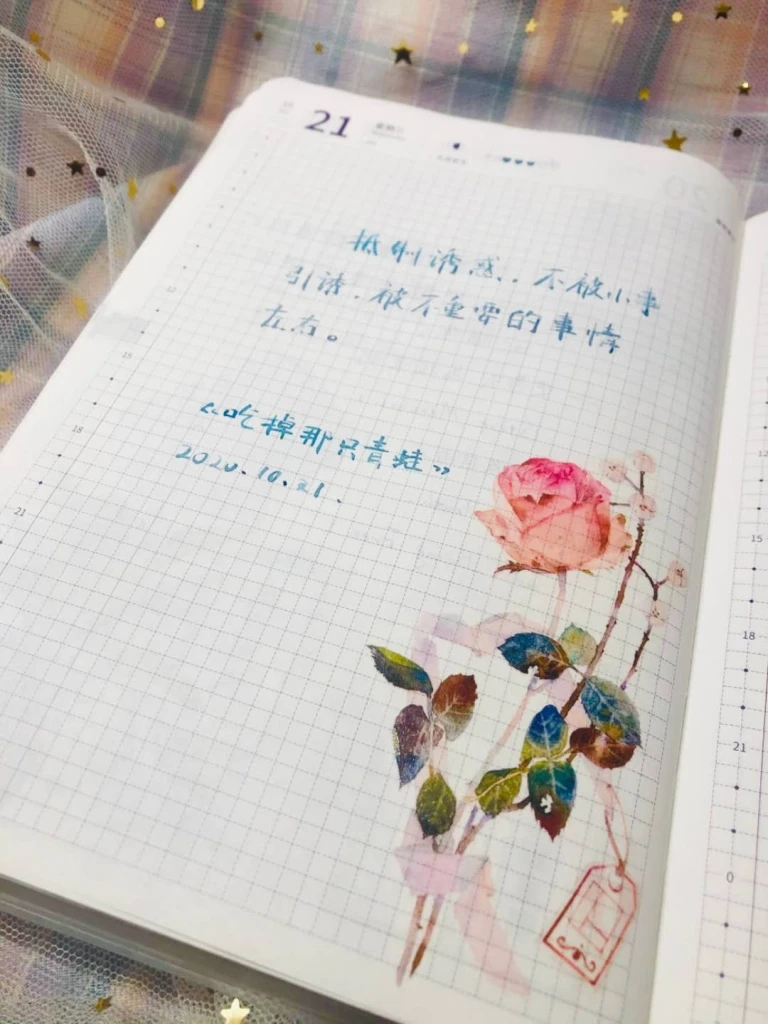 21
抵制诱惑，不被小事
引诱，被不重要的事情
左右。
《吃掉那只青蛙》
2020.10.21.
15
18
21
12
15
18
21
0